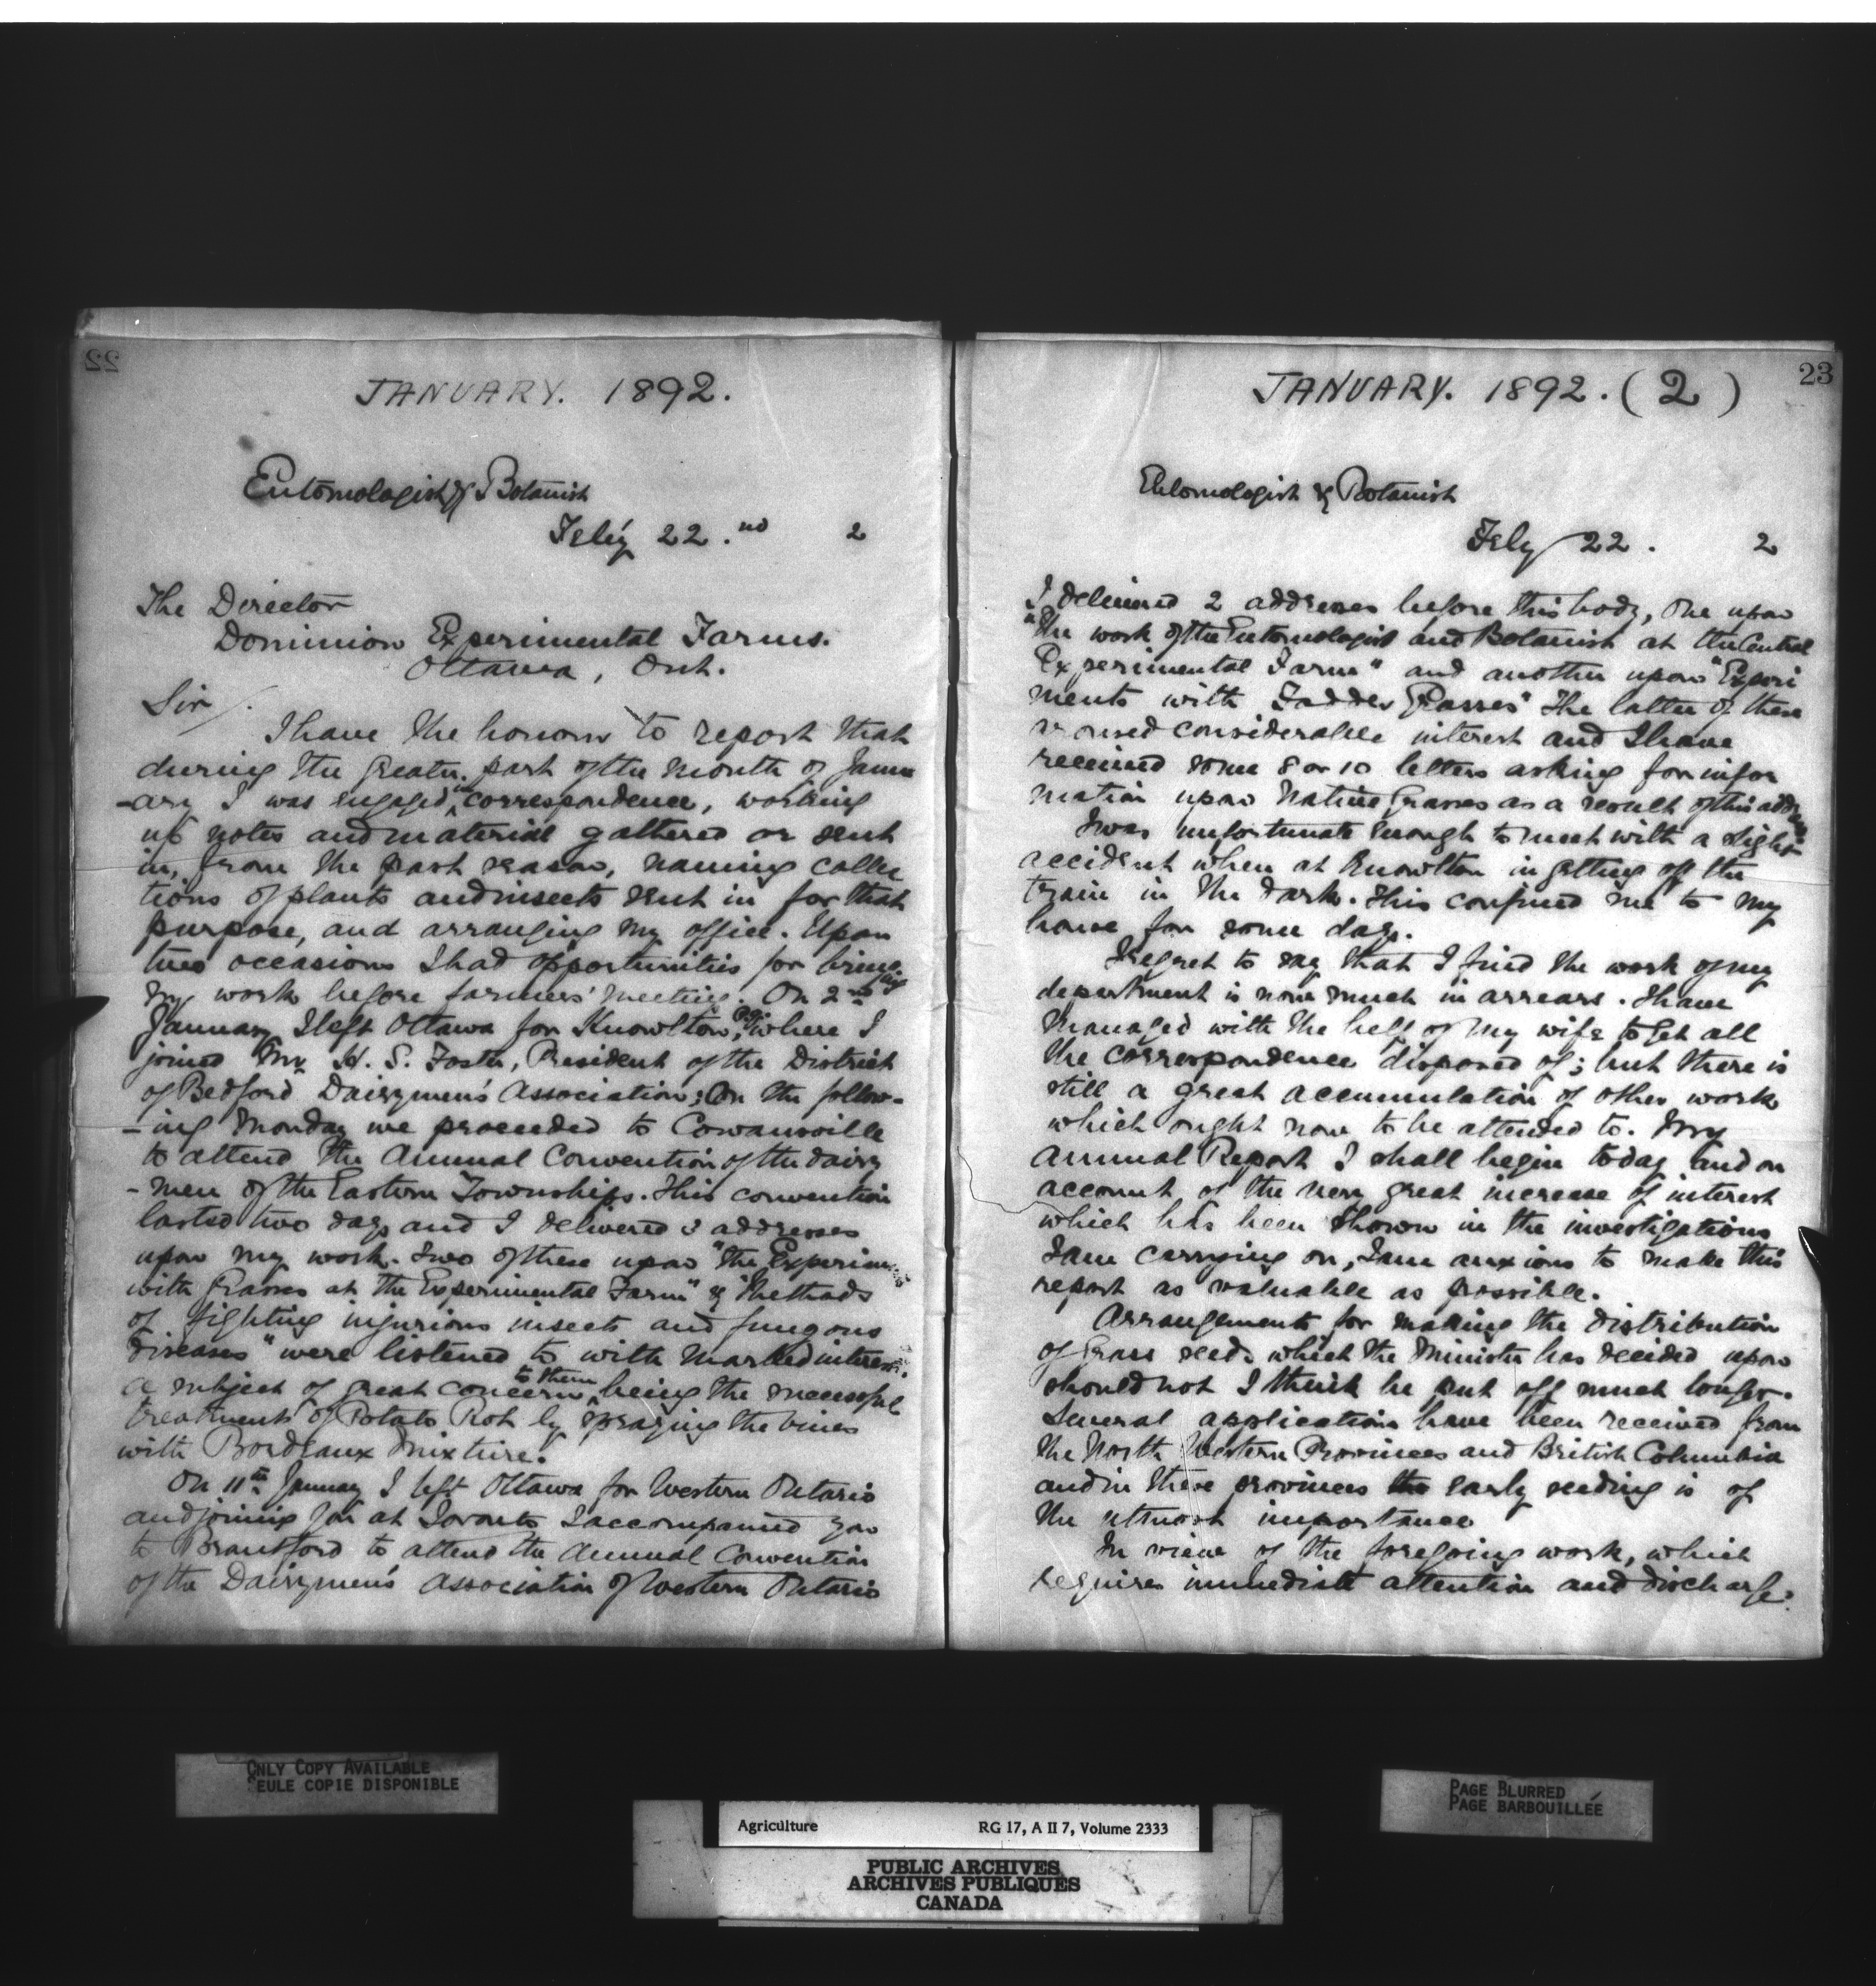 22
JANUARY. 1892.
Entomologist & Botanist
Feb'y 22.nd 2
The Director
Dominion Experimental Farms.
Ottawa, Ont.
Sir/.
I have the honour to report that
during the greater part of the month of Janu
-ary I was engaged in correspondence, working
up notes and material gathered or sent
in, from the past season, naming collec
tions of plants and insects sent in for that
purpose, and arranging my office. Upon
two occasions I had opportunities for bringing
my work before farmers' meetings. On 2nd
January I left Ottawa for Knowlton, P.Q. where I
joined Mr. H. S. Foster, President of the District
of Bedford Dairymen's Association; On the follow-
-ing Monday we proceeded to Cowansville
to attend the Annual Convention of the dairy
-men of the Eastern Townships. This convention
lasted two days and I delivered 3 addresses
upon my work. Two of these upon "the Experiments
with Grasses at the Experimental Farm" & "Methods
of fighting injurious insects and fungous
diseases" were listened to with marked interest.
a subject of great concern to them being the successful
treatment of Potato Rot by spraying the vines
with Bordeaux Mixture.
On 11th January I left Ottawa for Western Ontario
and joining you at Toronto I accompanied you
to Brantford to attend the Annual Convention
of the Dairymen's Association of Western Ontario
23
JANUARY. 1892. (2)
Entomologist & Botanist
Feby 22. 2
I delivered 2 addresses before this body, One upon
"The work of the Entomologist and Botanist at the Central
Experimental Farm" and another upon "Experi
ments with Fodder Grasses" The latter of these
aroused considerable interest and I have
received some 8 or 10 letters asking for infor
mation upon Native Grasses as a result of this address
I was unfortunate enough to meet with a slight
accident when at Knowlton in getting off the
train in the dark. This confined me to my
house for some days.
I regret to say that I find the work of my
department is now much in arrears. I have
managed with the help of my wife to get all
the correspondence disposed of; but there is
still a great accumulation of other work
which ought now to be attended to. My
Annual Report I shall begin today and on
account of the very great increase of interest
which has been shown in the investigations
I am carrying on, I am anxious to make this
report as valuable as possible.
Arrangements for making the distribution
of Grass seeds which the Minister has decided upon
should not I think be put off much longer.
Several applications have been received from
the North Western Provinces and British Columbia
and in these provinces the early seeding is of
the utmost importance
In view of the foregoing work, which
requires immediate attention and discharge.
ONLY COPY AVAILABLE
SEULE COPIE DISPONIBLE
PAGE BLURRED
PAGE BARBOUILLÉE
Agriculture RG 17, A II 7, Volume 2333
PUBLIC ARCHIVES
ARCHIVES PUBLIQUES
CANADA